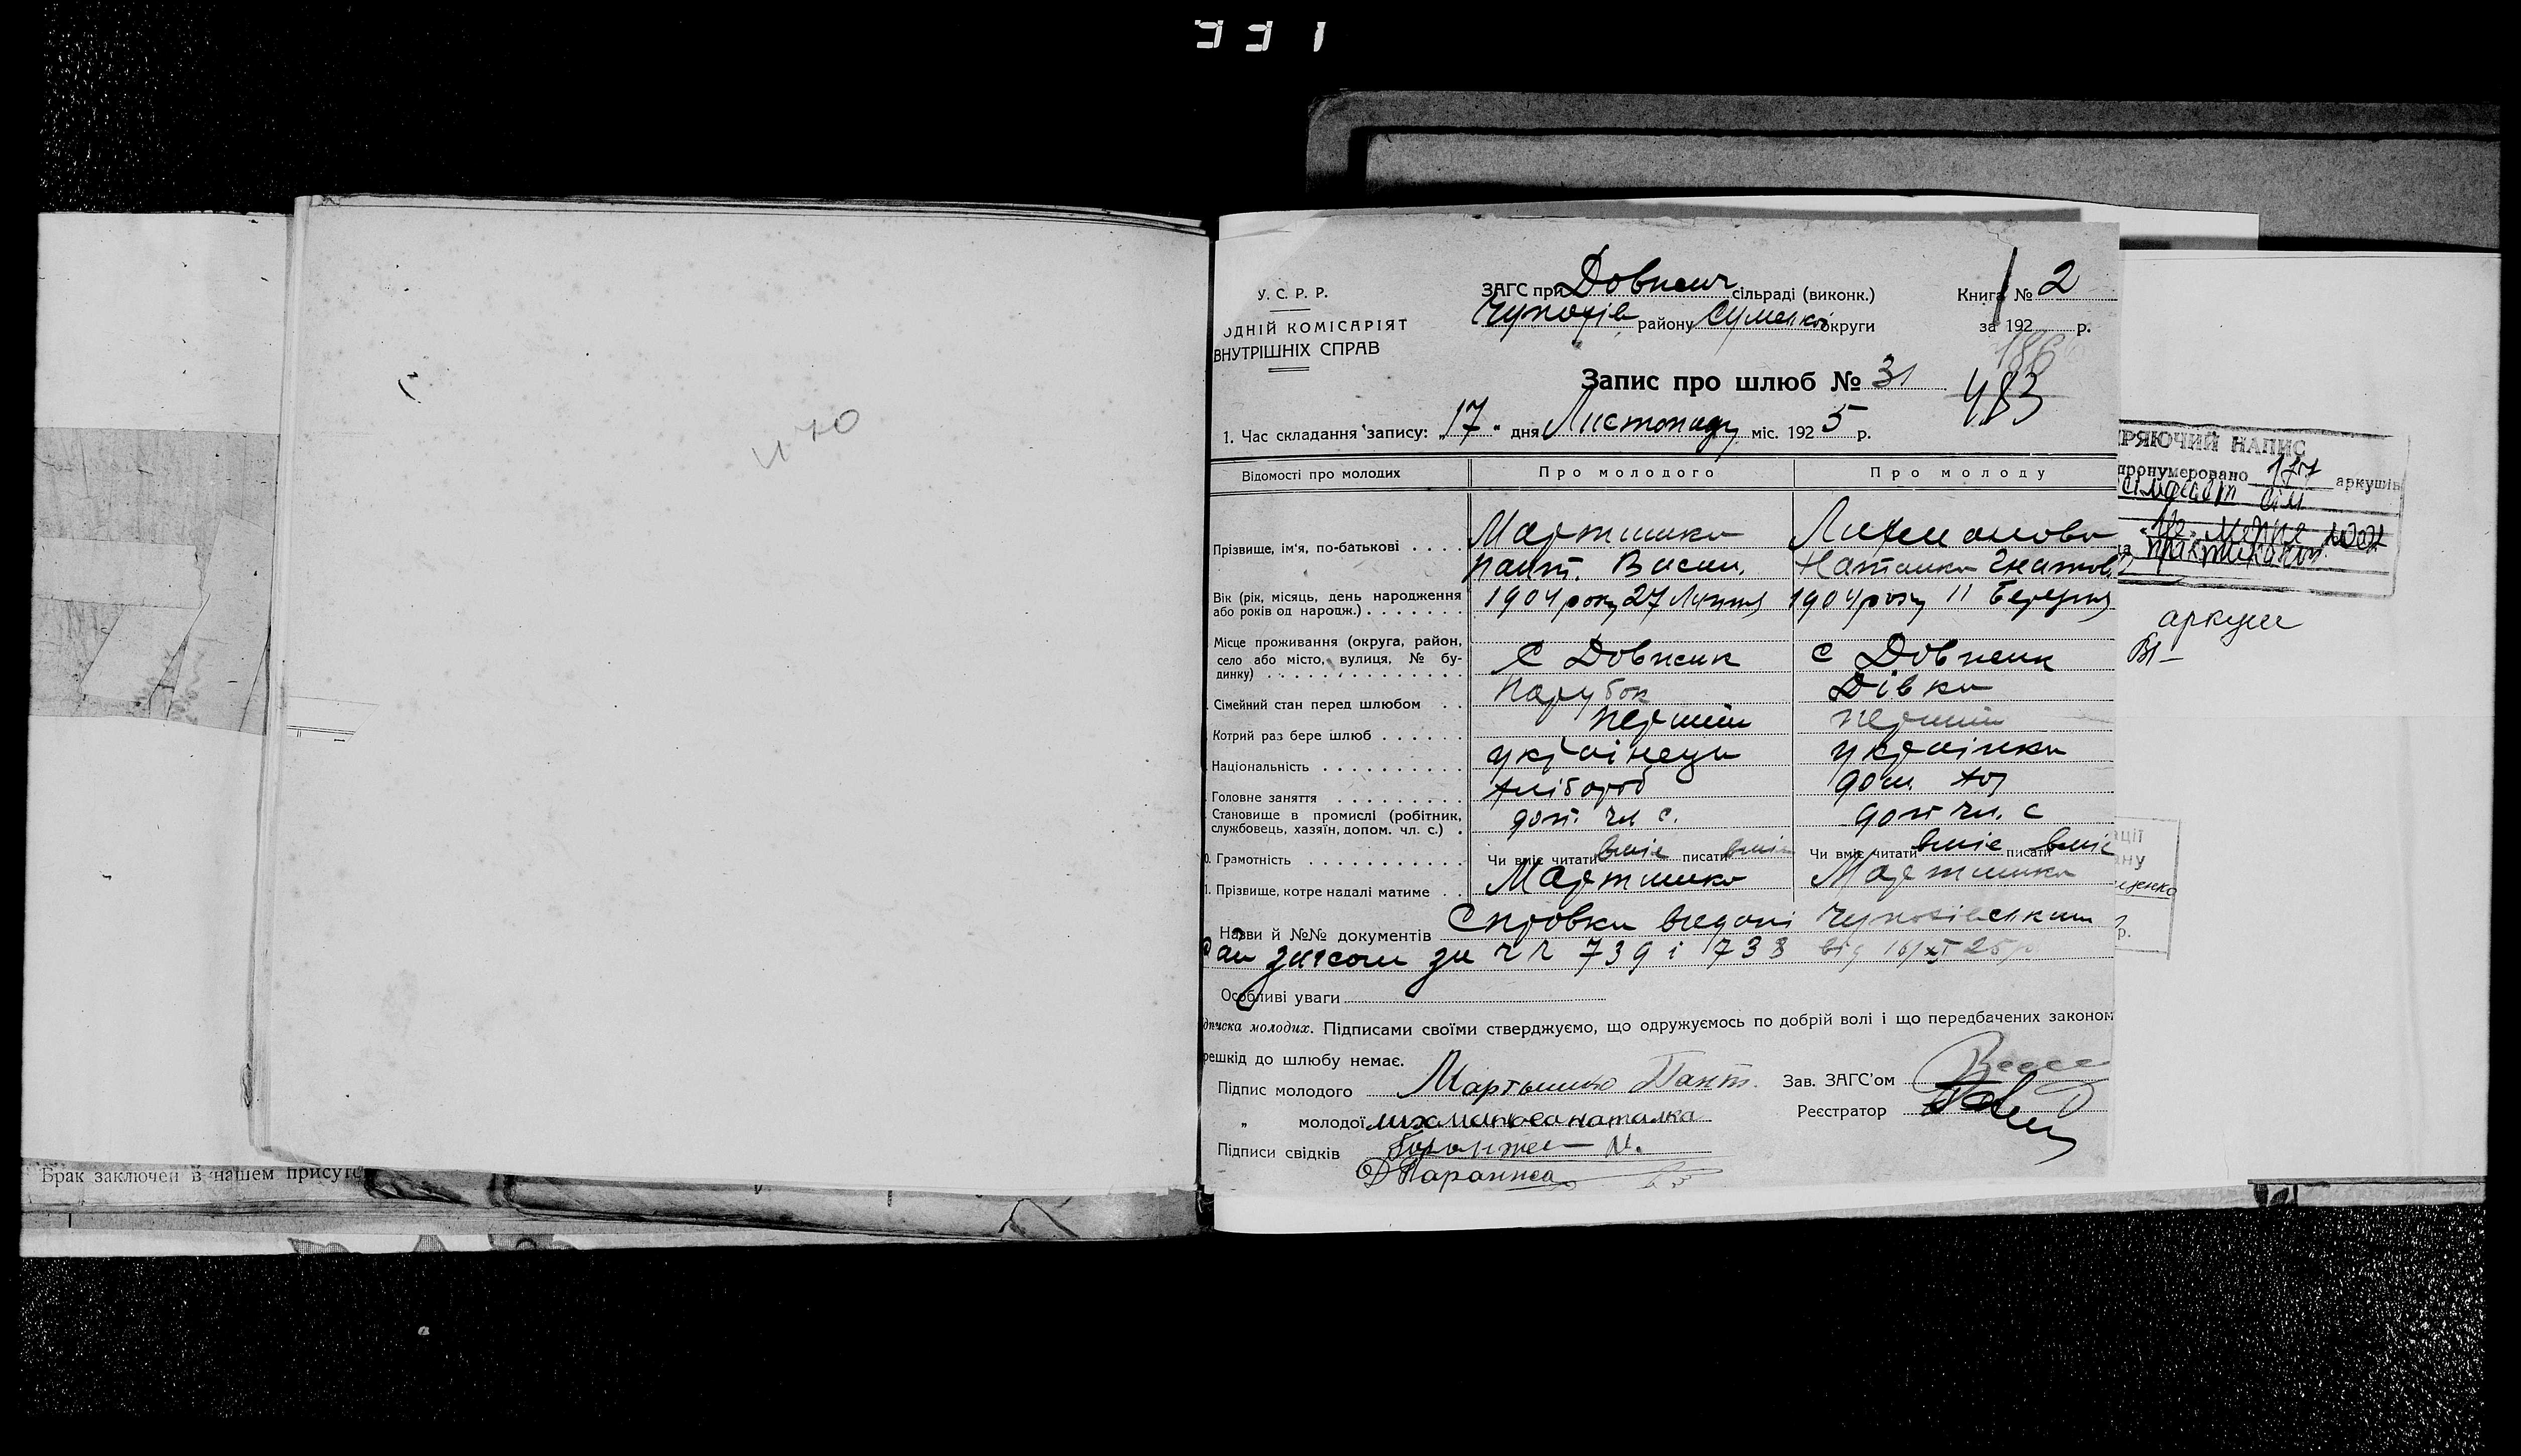 331
У. С. Р. Р.
ОДНІЙ КОМІСАРІЯТ
ВНУТРІШНІХ СПРАВ
ЗАГС при Довжич сільраді (виконк.)
Чупахів району Сумської округи
Книга № 2
за 192 р.
186
Запис про шлюб № 31
483
470
1. Час складання запису: „17" дня Листопаду міс. 1925 р.
Відомості про молодих Про молодого Про молоду
Прізвище, ім'я, по-батькові Мартишко Лихманова
Пант. Васил. Наталка Гнатов.
Вік (рік, місяць, день народження 1904 року 27 Липня 1904 року 11 Березня
або років од народж.)
Місце проживання (округа, район,
село або місто, вулиця, № бу- С Довжик С Довжик
динку)
Сімейний стан перед шлюбом Парубок Дівка
Котрий раз бере шлюб перший перший
Національність українець українка
Головне заняття хлібороб дом. хоз
Становище в промислі (робітник,
службовець, хазяїн, допом. чл. с.) доп. чл с. доп чл. с
0. Грамотність Чи вміє читати вміє писати вміє Чи вміє читати вміє писати вміє
1. Прізвище, котре надалі матиме Мартишко Мартишко
Назви й №№ документів Справки видані Чупахівським
Рай загсом за чч 739 і 738 від 16/XI 25р
Особливі уваги
дписка молодих. Підписами своїми стверджуємо, що одружуємось по добрій волі і що передбачених законом
решкід до шлюбу немає.
Підпис молодого Мартышко Пант. Зав. ЗАГС'ом
„ молодої лихманова наталка Реєстратор
Підписи свідків
РЯЮЧИЙ НАПИС
пронумеровано 177 аркушів
сімдесят сім
аркуш
ції
ну
щенко
р.
Брак заключен в нашем присутс